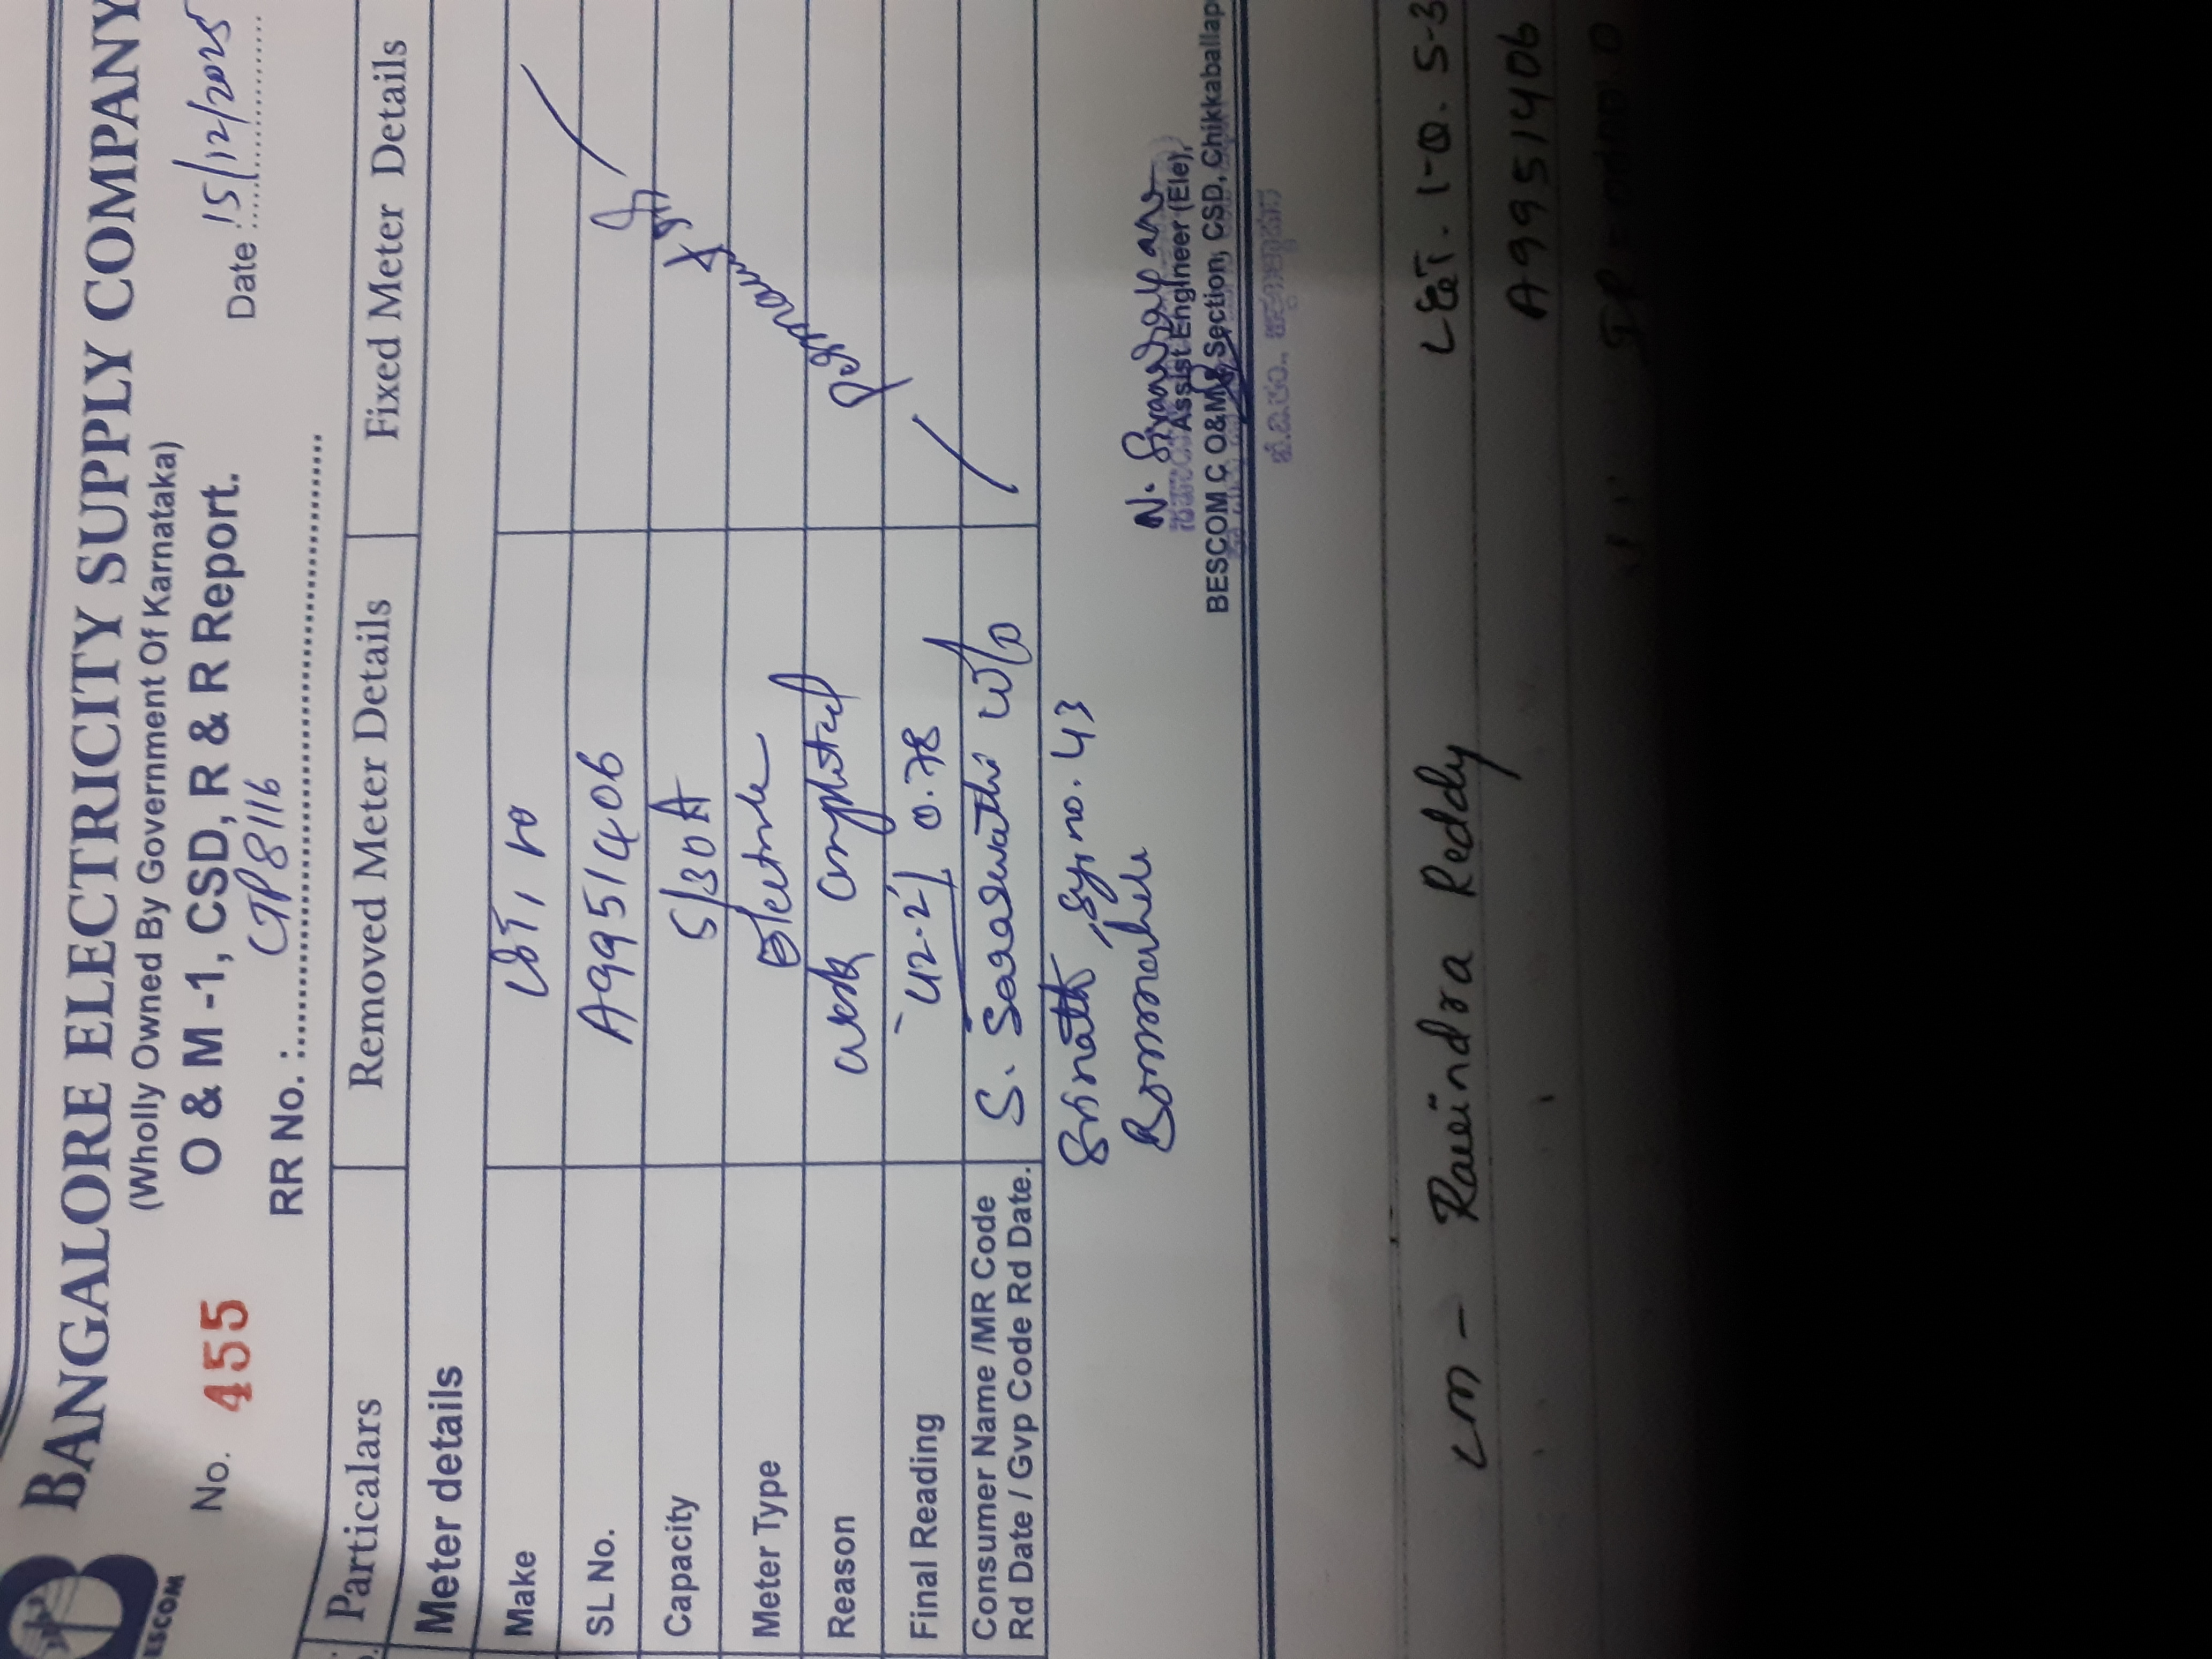 BANGALORE ELECTRICITY SUPPLY COMPANY
(Wholly Owned By Government Of Karnataka)
No. 455 O & M -1, CSD, R & R Report. Date : 15/12/2025
RR No. : GP8116
ESCOM
Particalars Removed Meter Details Fixed Meter Details
Meter details
Make L&T, 1-0
SL No. A9951406
Capacity 5/30A
Meter Type
Reason Work Completed
Final Reading 42-2 / 0.78
Consumer Name /MR Code S. Saraswathi W/o
Rd Date / Gvp Code Rd Date.
Srinath, Sy. no. 43
N.
Assist Engineer (Ele),
BESCOM C O&M Section, CSD, Chikkaballap
LM - Raveindra Reddy L&T. 1-Ø. 5-3
A9951406